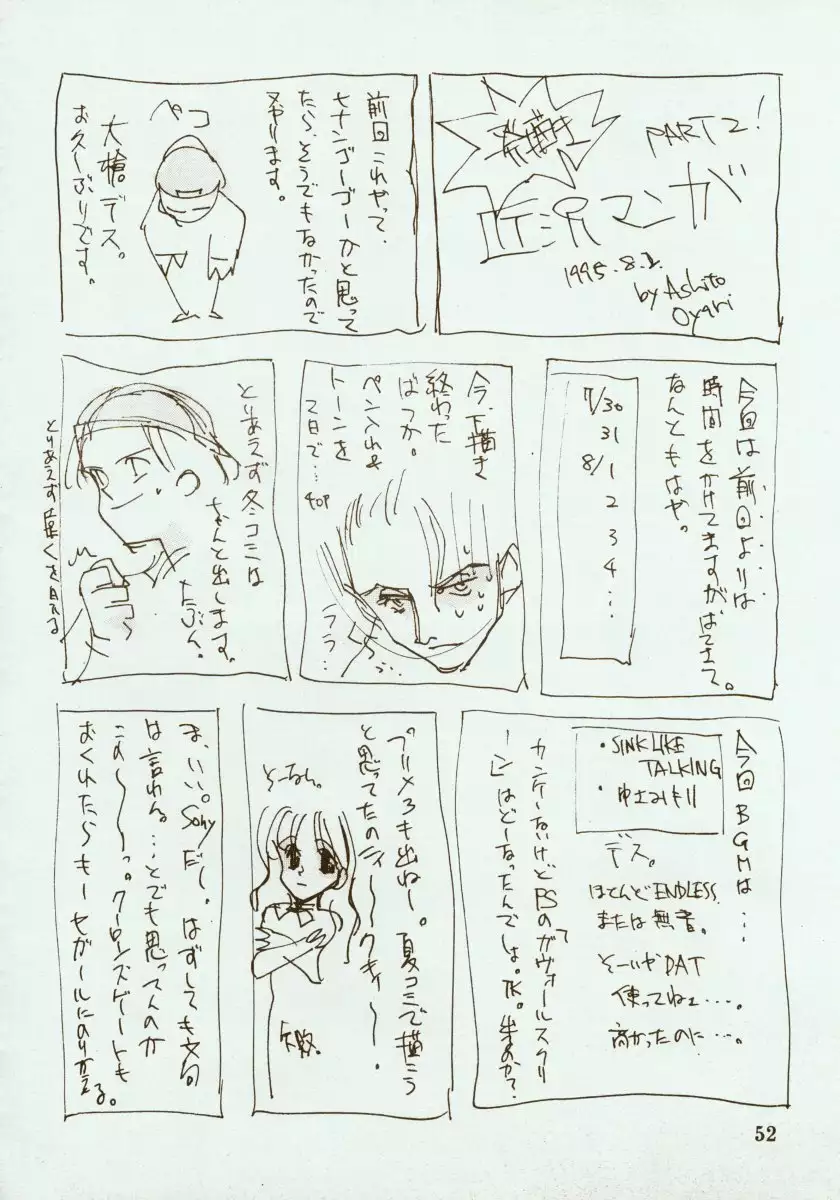 PART2!
近況マンガ
1995.8.2.
by Ashito
Oyari
前回これやって、
ヒナンゴーゴーかと思って
たら、そうでもなかったので
又やります。
ペコ
大槍デス。
お久しぶりです。
今回は前回よりは
時間をかけてますがばてきて。
なんともはや。
7/30
31
8/1
2
3
4
⋮
今、下描き
終わった
ばっか。
ペン入れ&
トーンを
2日で…
40P
フラフラ…
とりあえず冬コミは
ちゃんと出します。
たぶん。
とりあえず遠くを見る
今回BGMは…
・SINK LIKE
TALKING
デス。
ほとんどENDLESS
または無音。
そーいやDAT
使ってねェ…。
高かったのに…。
カンケーないけどPSの「ガヴォールスクリ
ーン」はどーなったんでしょ。TK。出るのか?
プリメ3も出ねー。夏コミで描こう
と思ってたのにィ〜〜クキィ〜〜。
そーなん。
ま、いい。Sonyだし。はずしても文句
は言わん。…とでも思ってんのか
この〜〜〜っ。クーロンズゲートも
おくれたらもーセガールにのりかえる。
52